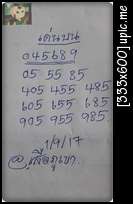 เด่นบน
045689
05 55 85
405 455 485
605 655 685
905 955 985
1/9/17
@เสือภูเขา
[333x600] upic.me